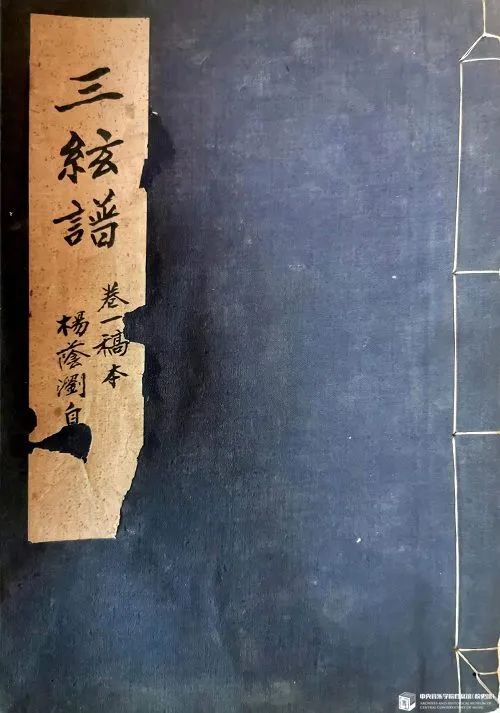 三絃譜
卷一稿本
楊蔭瀏自
中央音乐学院档案馆(校史馆)
ARCHIVES AND HISTORICAL MUSEUM OF
CENTRAL CONSERVATORY OF MUSIC